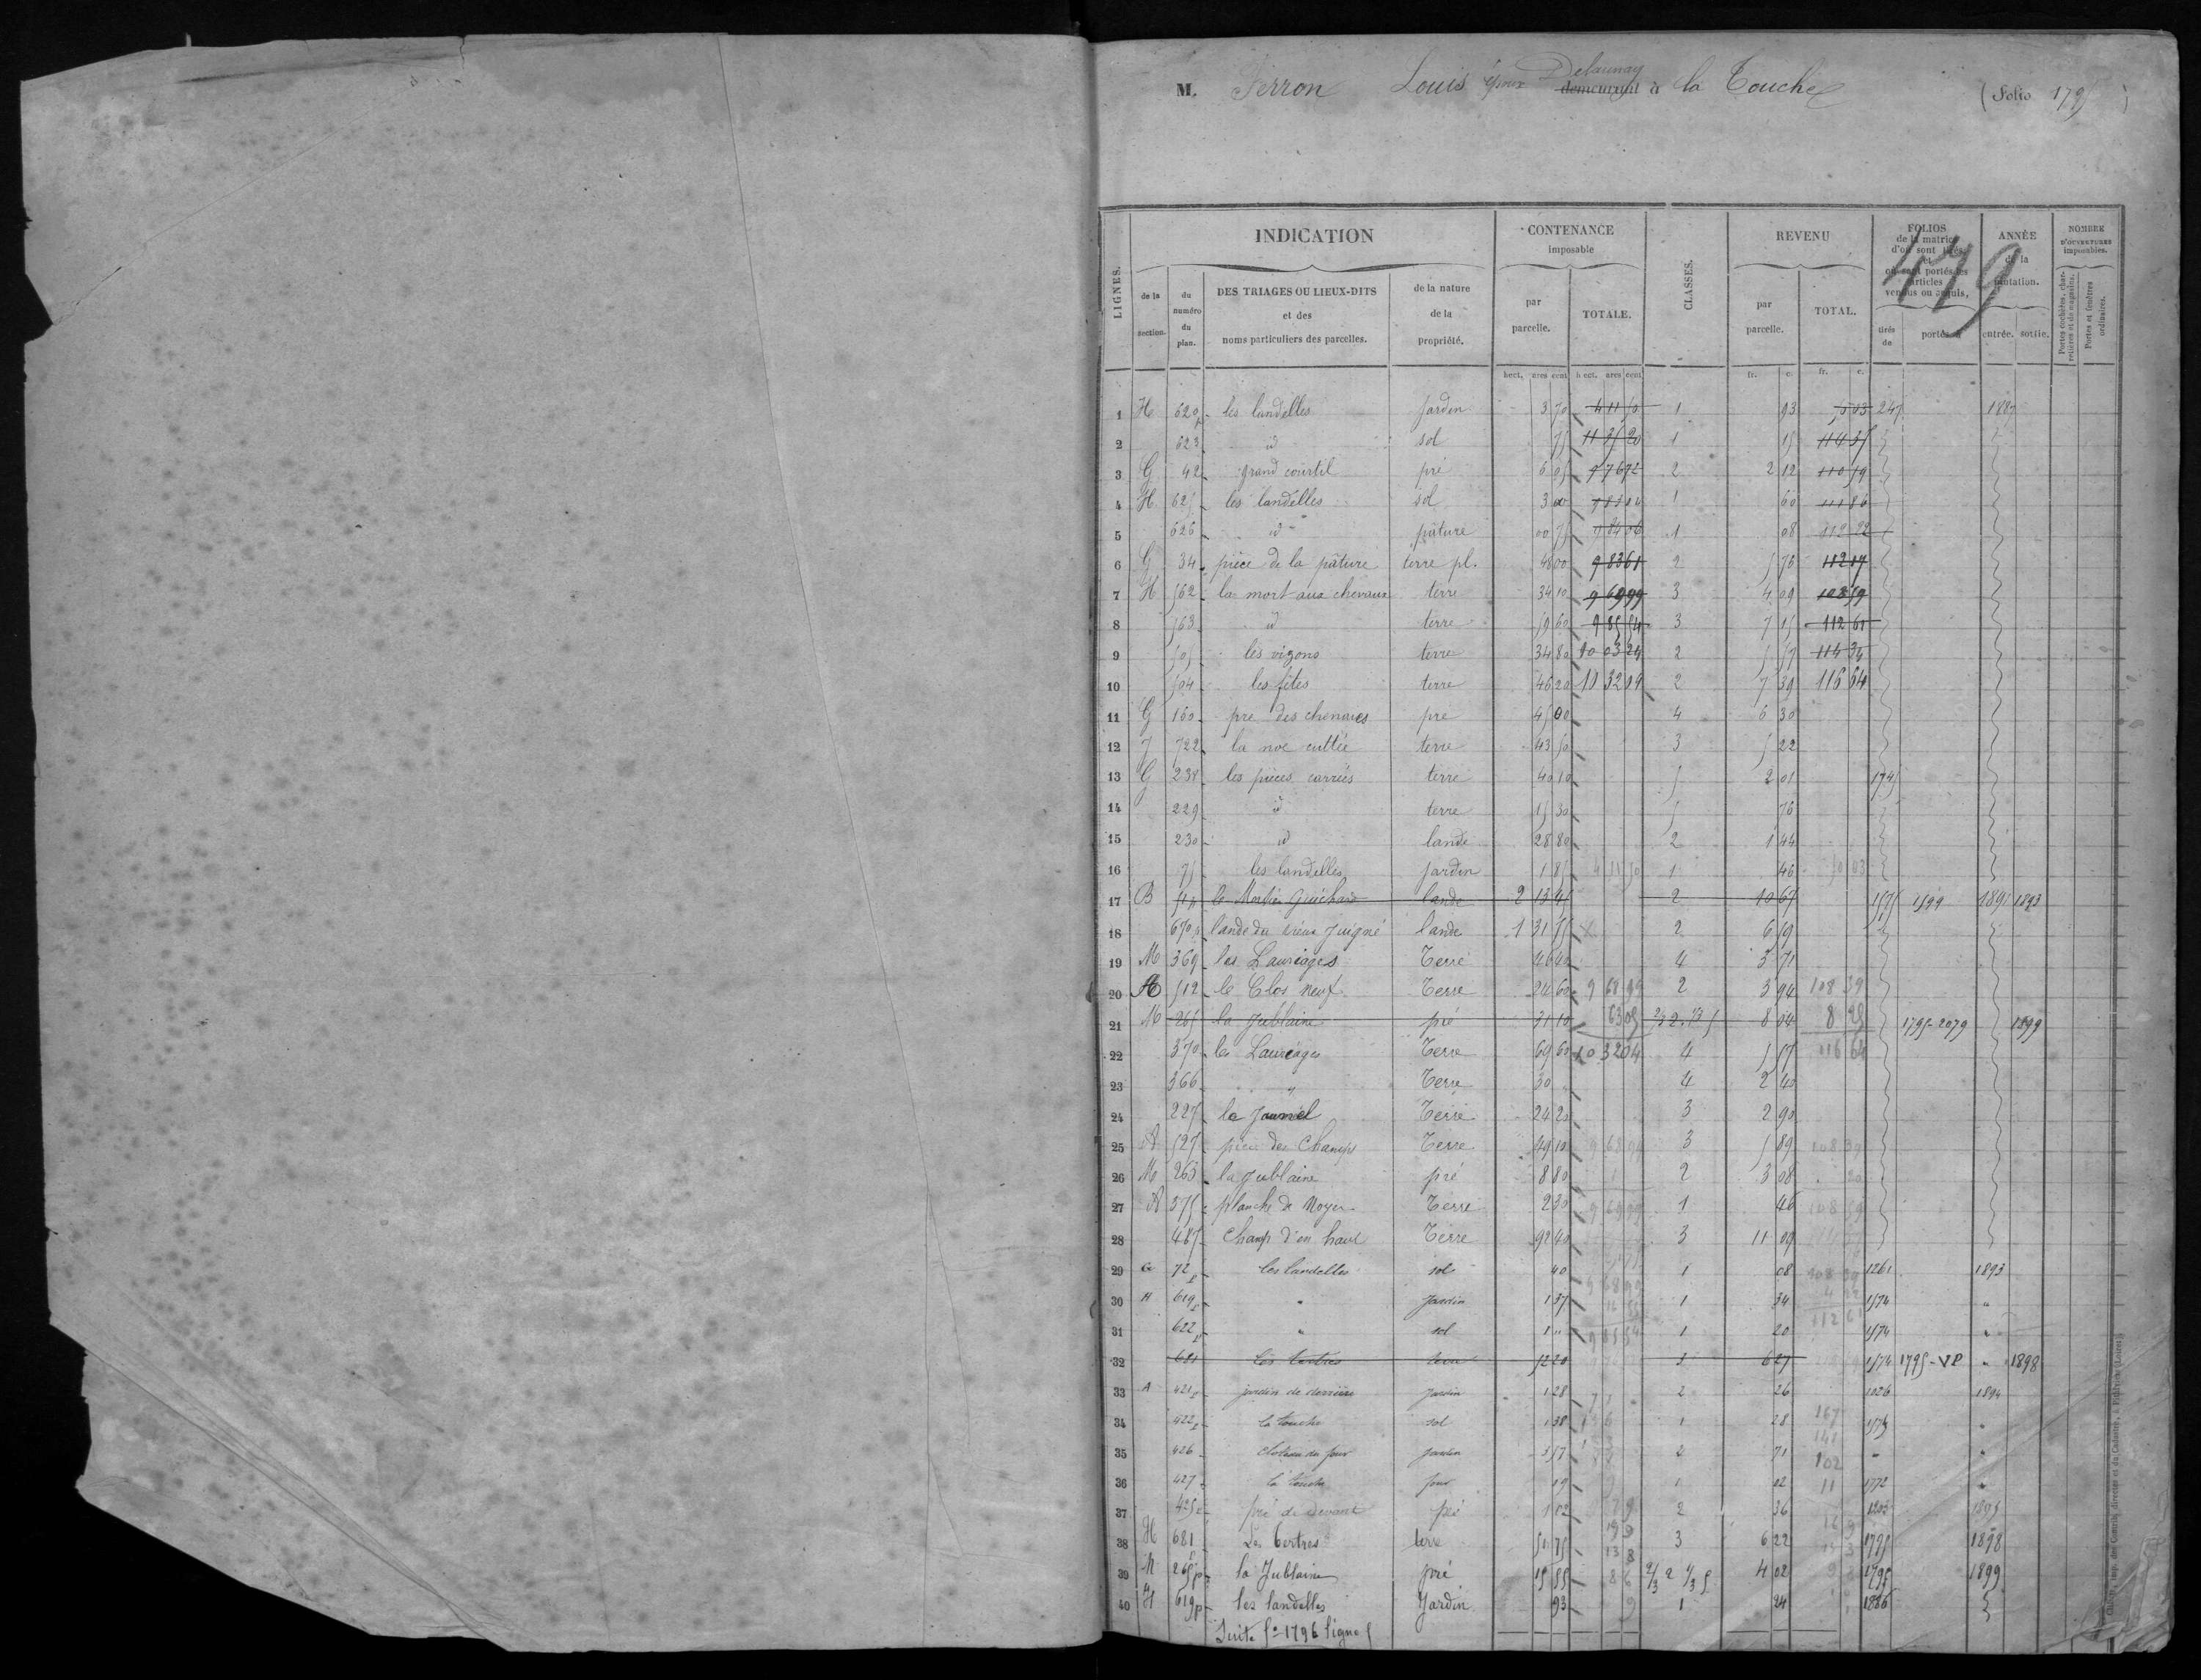 M. Ferron Louis époux Delaunay demeurant à la Touche (Folio 1795)
LIGNES. INDICATION CONTENANCE imposable CLASSES. REVENU FOLIOS de la matrice d'où sont tirés et où sont portés les articles vendus ou acquis, ANNÉE de la mutation. NOMBRE D'OUVERTURES imposables.
479
de la section. du numéro du plan. DES TRIAGES OU LIEUX-DITS et des noms particuliers des parcelles. de la nature de la propriété. par parcelle. TOTALE. par parcelle. TOTAL. tirés de portés à entrée. sortie. Portes cochères, charretières et de magasins. Portes et fenêtres ordinaires.
hect. ares cent hect. ares cent fr. c. fr. c.
1 H 620p les landelles jardin 3 70 4 11 50 1 93 50 03 247 1887
2 623 id sol 75 11 35 20 1 15 114 35
3 G 42 grand courtil pré 6 05 9 76 72 2 2 12 110 59
4 H 625 les landelles sol 3 00 1 60 111 86
5 626 id pâture 00 75 9 84 06 1 08 112 22
6 G 34 pièce de la pâture terre pl. 48 00 9 83 61 2 5 76 112 07
7 H 562 la mort aux chevaux terre 34 10 9 69 99 3 4 09 108 59
8 563 id terre 59 60 9 85 54 3 7 15 112 61
9 505 les vigons terre 34 80 10 03 24 2 5 57 114 34
10 504 les fêtes terre 46 20 10 32 09 2 7 39 116 64
11 G 160 pré des chenaies pré 45 00 4 6 30
12 J 722 la noe cuttée terre 43 50 3 5 22
13 G 238 les pièces carrées terre 40 10 5 2 01 1745
14 229 id terre 15 30 5 76
15 230 id lande 28 80 2 1 44
16 75 les landelles jardin 1 85 4 11 50 1 46 50 03
17 B le Mortier Guichard lande 2 13 45 2 10 67 1575 1599 1891 1893
18 670p lande du vieux Juigné lande 1 31 75 2 6 59
19 M 369 les Lauriages Terre 46 40 4 3 71
20 A 512 le Clos neuf Terre 24 60 9 68 99 2 3 94 108 39
21 M 265 la Jublaine pré 31 10 63 05 2/3 2. 1/3 5 8 04 8 25 1795-2079 1899
22 370 les Lauriages Terre 69 60 10 32 04 4 5 57 116 64
23 366 " Terre 30 " 4 2 40
24 227 le Journel Terre 24 20 3 2 90
25 A 527 pièce des Champs Terre 49 10 9 68 94 3 5 89 108 39
26 M 263 la Jublaine pré 8 80 2 3 08 20
27 A 375 planche de Noyer Terre 2 30 9 69 99 1 46 108 59
28 487 Champ d'en haut Terre 92 40 3 11 09
29 G 72p les landelles sol 40 9 68 99 1 08 108 39 1261 1893
30 H 619p " Jardin 1 37 1 34 1574 "
31 622p " sol 1 " 9 85 54 1 20 112 61 1574 "
32 681 les tertres terre 52 20 3 6 27 1574 1795-VP " 1898
33 A 421p jardin de derrière jardin 1 28 2 26 1026 1894
34 422p la touche sol 1 38 1 28 167 1575 "
35 426 jardin 3 57 2 71 "
36 427 la touche four 19 1 02 11 1772 "
37 425p pré de devant pré 1 02 2 36 1203 1895
38 H 681p Les tertres terre 51 75 3 6 22 1795 1898
39 M 265p la Jublaine pré 15 55 2/3 2 1/3 5 4 02 1795 1899
40 H 619p les landelles Jardin 93 1 24 1886
Suite f° 1796 ligne 5